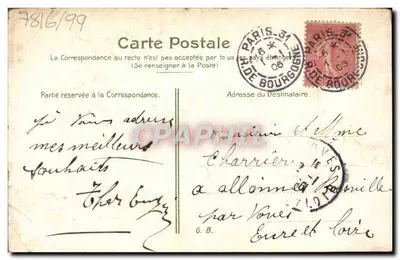 7816/99
Carte Postale
La Correspondance au recto n'est pas acceptée par tous les pays étrangers
(Se renseigner à la Poste)
PARIS-31
R. DE BOURGOGNE
6
06
PARIS-31
R. DE BOURGOGNE
Partie réservée à la Correspondance.
Adresse du Destinataire.
Je vous adresse
mes meilleurs
souhaits
CPARAMA
Monsieur et Mme
Charrier
à Allonnes
par Voves
Eure et Loir
G. B.